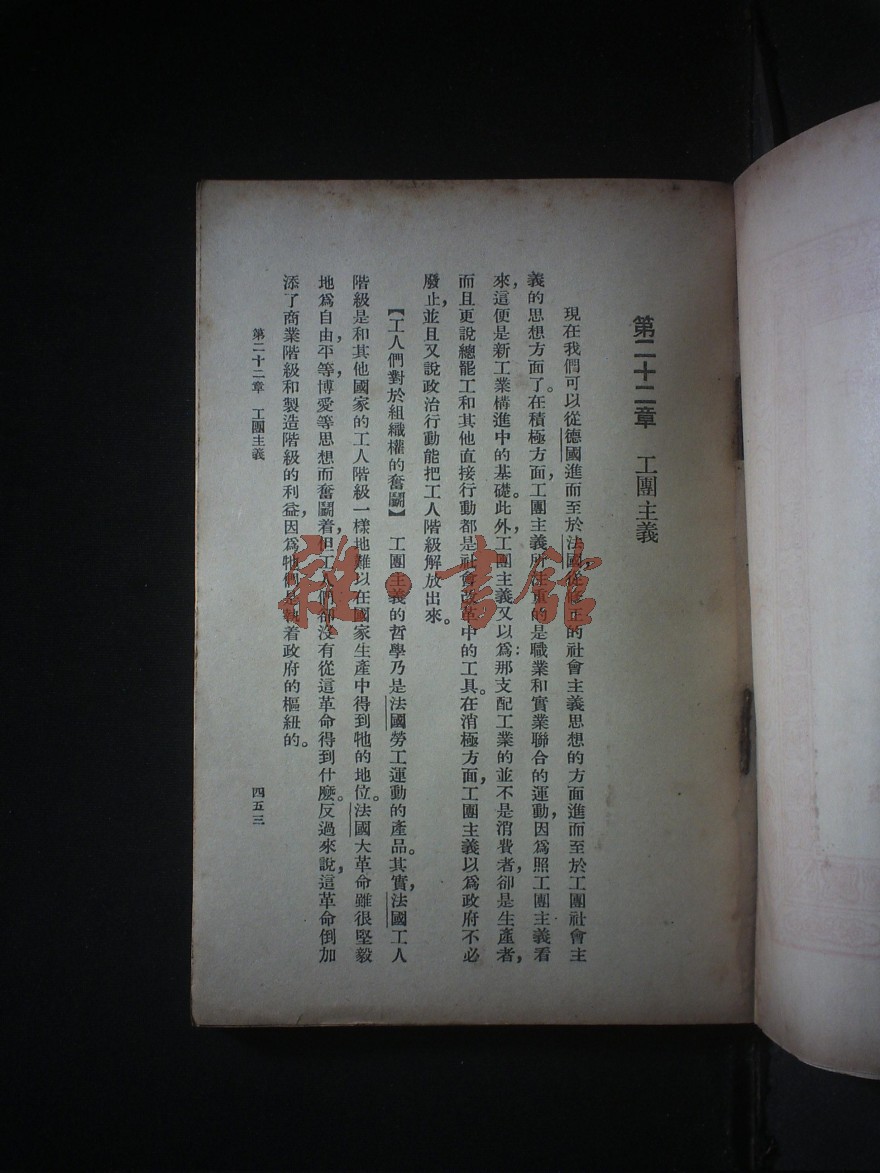 第二十二章　工團主義
現在我們可以從德國進而至於法國，從修正的社會主義思想的方面進而至於工團社會主
義的思想方面了。在積極方面，工團主義所注重的是職業和實業聯合的運動，因爲照工團主義看
來，這便是新工業構進中的基礎。此外，工團主義又以爲：那支配工業的並不是消費者，卻是生產者，
而且更說總罷工和其他直接行動都是社會改革中的工具。在消極方面，工團主義以爲政府不必
廢止，並且又說政治行動能把工人階級解放出來。
【工人們對於組織權的奮鬭】　工團主義的哲學乃是法國勞工運動的產品。其實，法國工人
階級是和其他國家的工人階級一樣地難以在國家生產中得到牠的地位。法國大革命雖很堅毅
地爲自由，平等，博愛等思想而奮鬭着，但工人們卻沒有從這革命得到什麼。反過來說，這革命倒加
添了商業階級和製造階級的利益，因爲牠們是執着政府的樞紐的。
第二十二章　工團主義
四五三
雜·書館